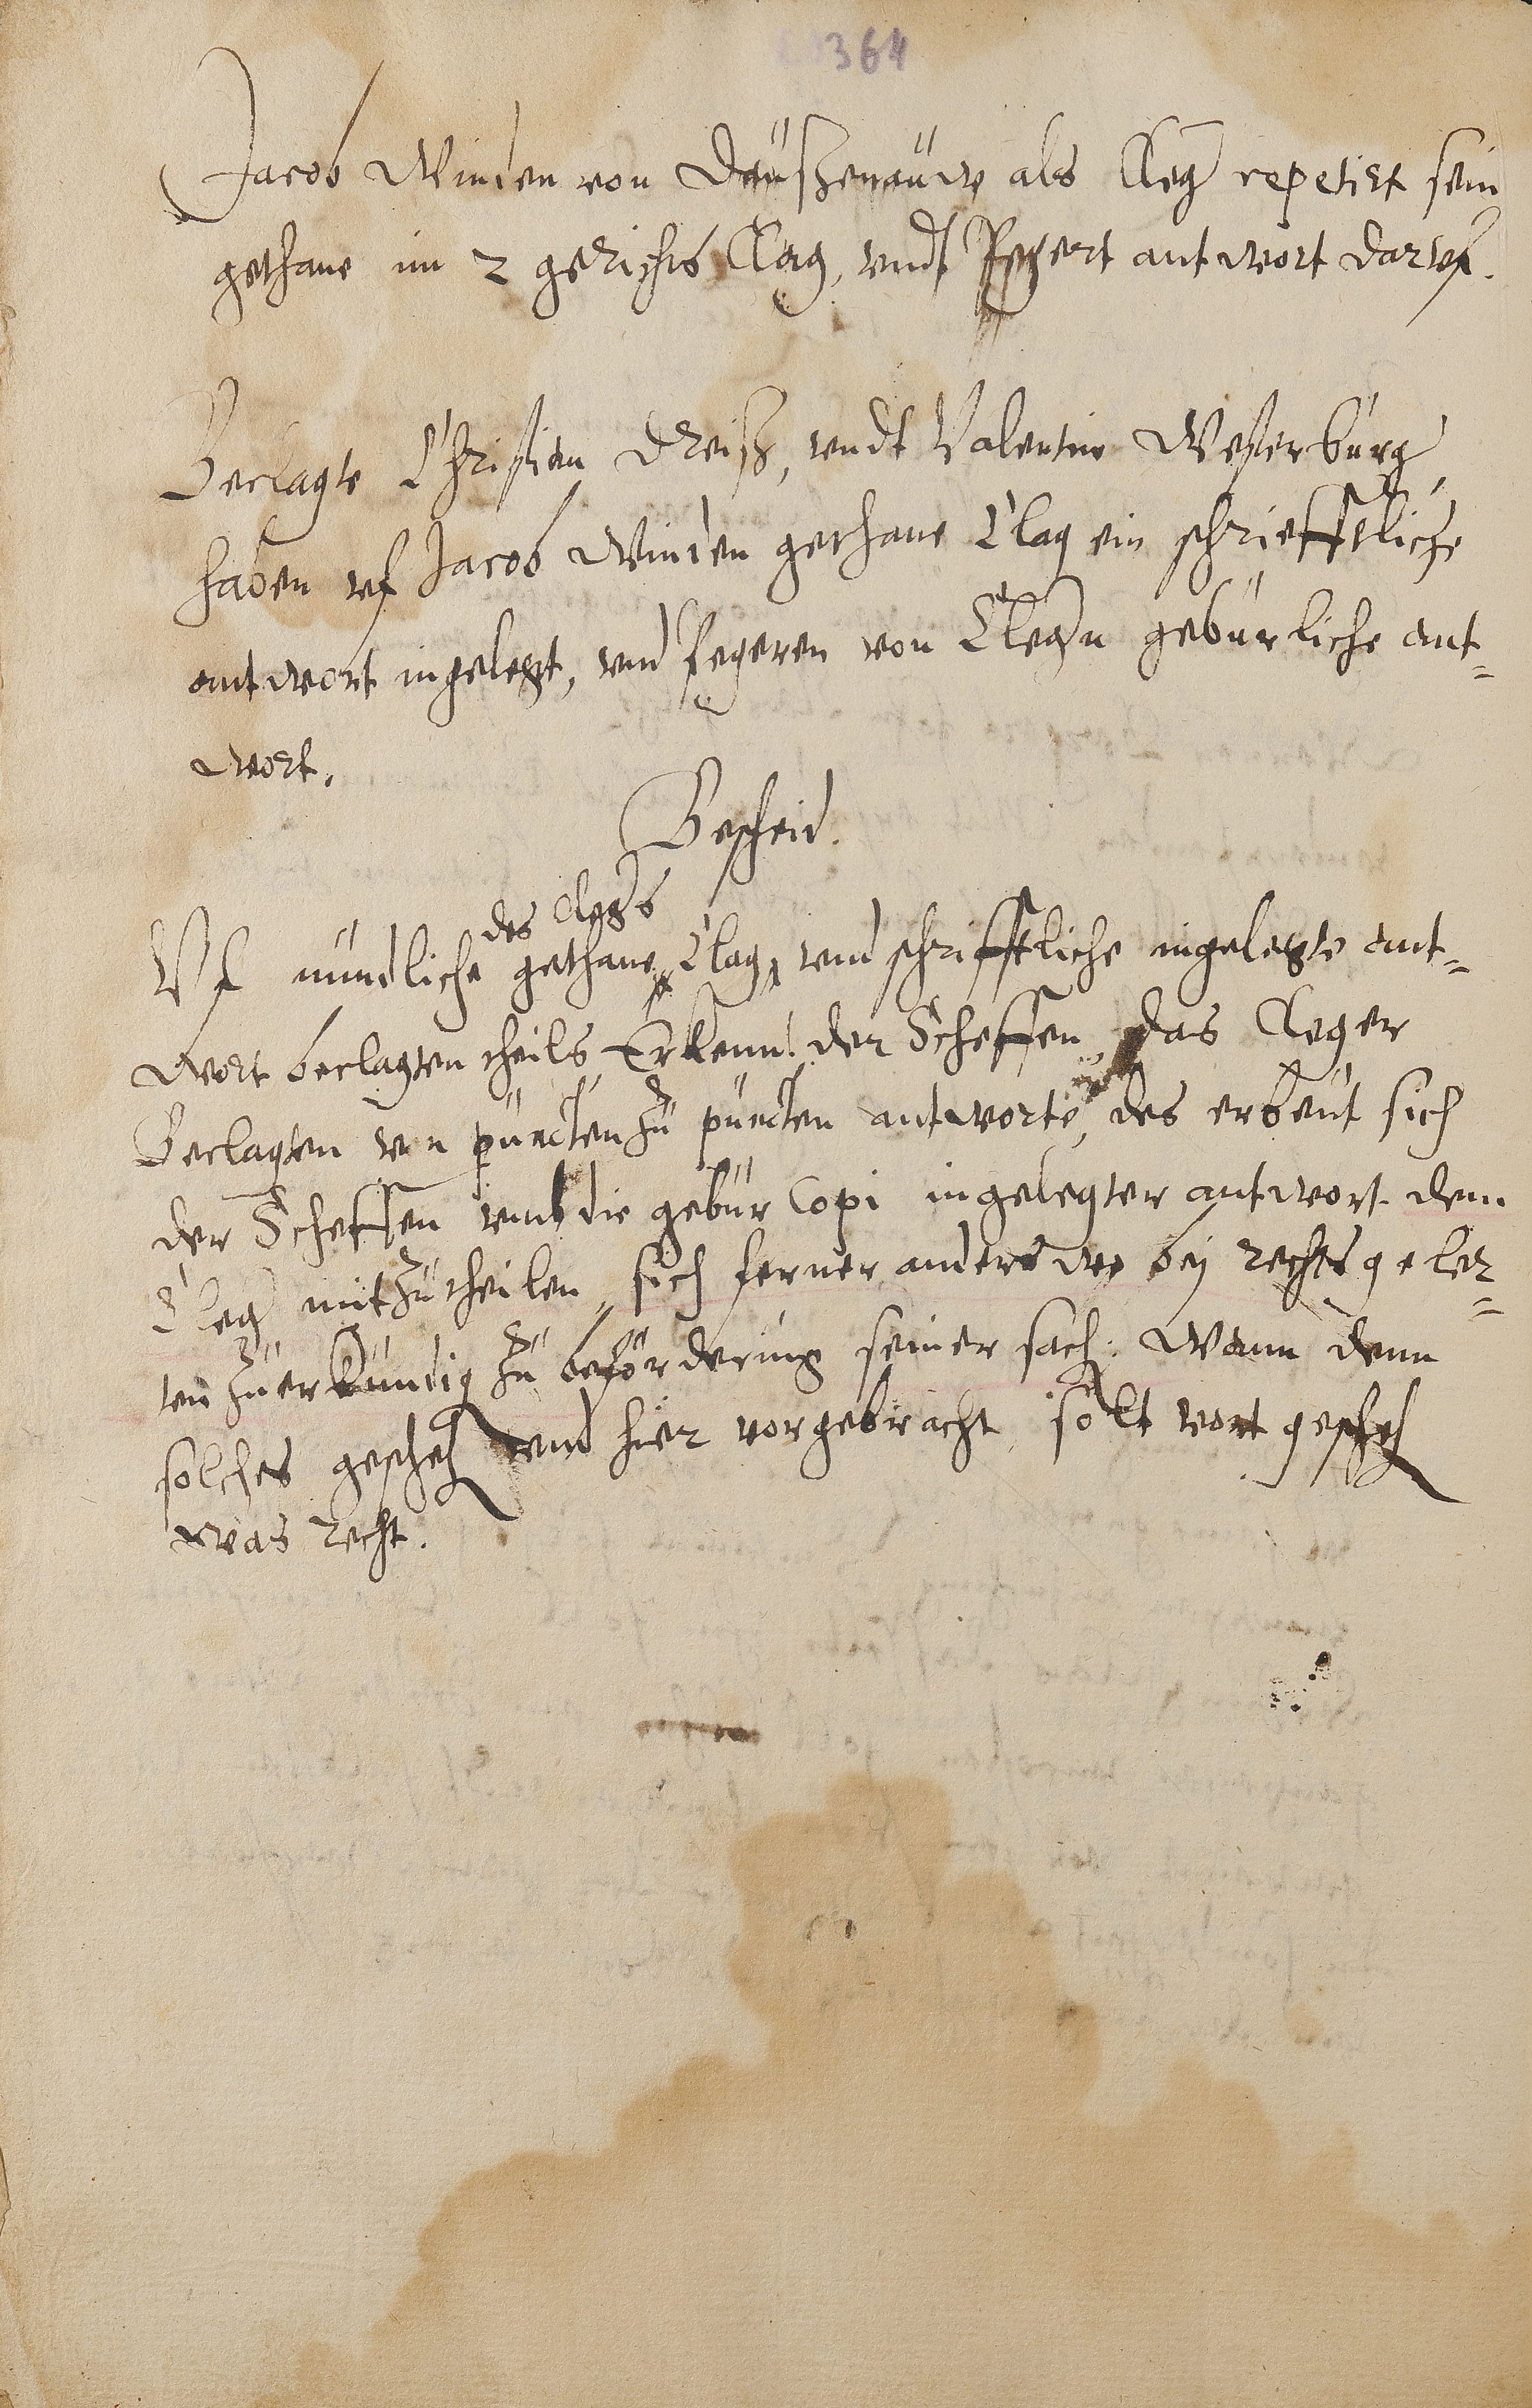 364
Jacob Winden von Daußenauw als Cleg repetirt sein
gethane im 2 gerichts Clag, vndt Begert antwort darvf.
Beclagte Christian Dreiß, vndt Valentin Westerburg
haben vf Jacob Winden gethane Clag ein schriefftliche
antwort ingelegt, vnd begeren von Clegern gebürliche ant=
wort.
Bescheid.
des Clegers
Vf mündliche gethane Clag, vnd schrifftliche ingelegte ant=
wort beclagten theils, Erkennt der Scheffen das Cleger
Beclagten von puncten zu puncten antworte, des erbeut sich
der Scheffen vmb die gebür Copi ingelegter antwort dem
Cleger mitzutheilen, sich ferner anderswo bey rechtsgeler=
ten zuerkündig zu beförderung seiner sach. Wann denn
solches gescheh vnd hier vorgebracht, solt wort gescheh
was recht.